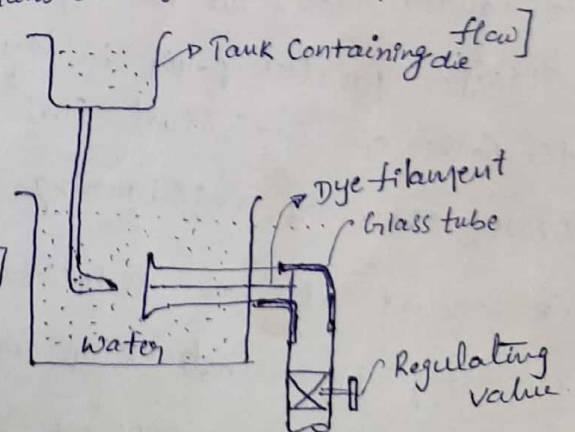 flow]
Tank Containing die
Dye filament
Glass tube
Water
Regulating
value